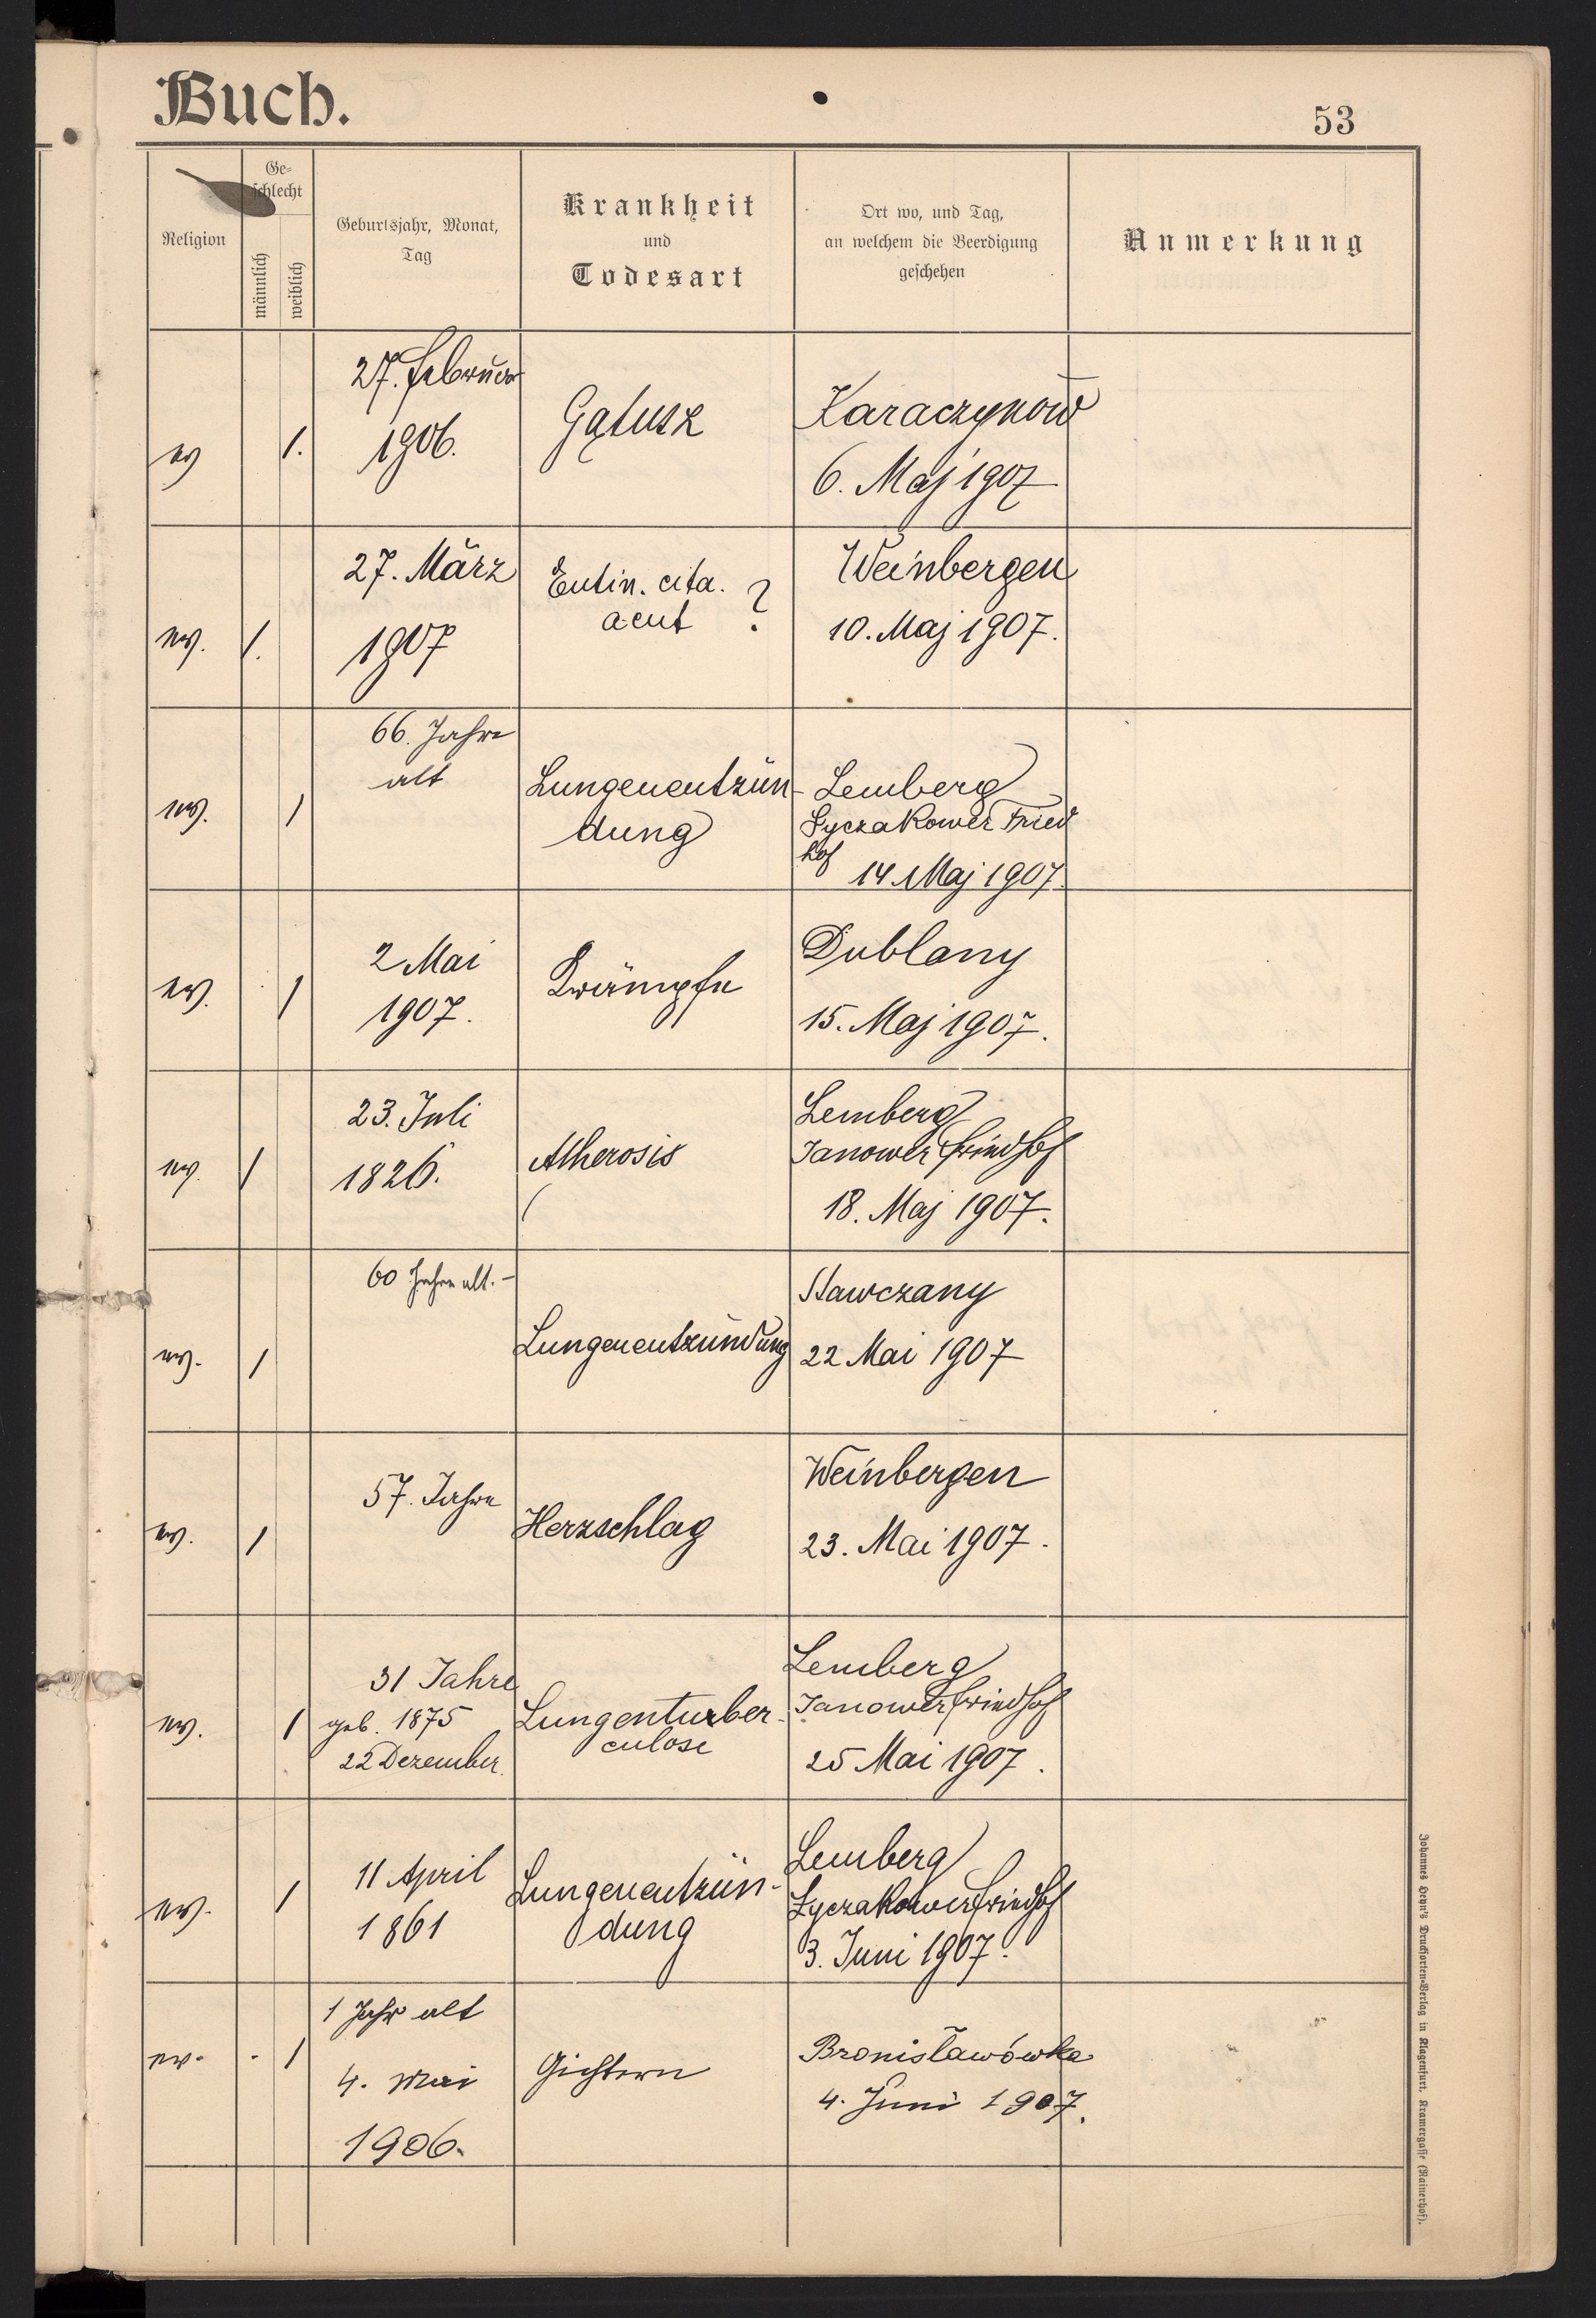 Buch.
53
Religion
Ge-
schlecht
männlich
weiblich
Geburtsjahr, Monat,
Tag
Krankheit
und
Todesart
Ort wo, und Tag,
an welchem die Beerdigung
geschehen
Anmerkung
ev
1.
27. Februar
1906.
Gąłusz
Karaczynów
6. Maj 1907
ev.
1.
27. März
1907
Eutin. cita.
acut ?
Weinbergen
10. Maj 1907.
ev.
1
66. Jahre
alt
Lungenentzün-
dung
Lemberg
Lyczakower Fried
hof
14 Maj 1907.
ev.
1
2 Mai
1907.
Krämpfe
Dublany
15. Maj 1907.
ev.
1
23. Juli
1826.
Atherosis
Lemberg
Janower Friedhof
18. Maj 1907.
ev.
1
60 Jahre alt. -
Lungenentzündung
Stawczany
22 Mai 1907
ev.
1
57. Jahre
Herzschlag
Weinbergen
23. Mai 1907.
ev.
1
31 Jahre
geb. 1875
22 Dezember.
Lungenturber-
culose
Lemberg
Janower Friedhof
25 Mai 1907.
ev.
1
11 April
1861
Lungenentzün-
dung
Lemberg
Lyczakower Friedhof
3. Juni 1907.
ev.
1
1 Jahr alt
4. Mai
1906.
Gichtern
Bronisławówka
4. Juni 1907.
Johannes Heyn's Drucksorten-Verlag in Klagenfurt, Kramergasse (Rainerhof).